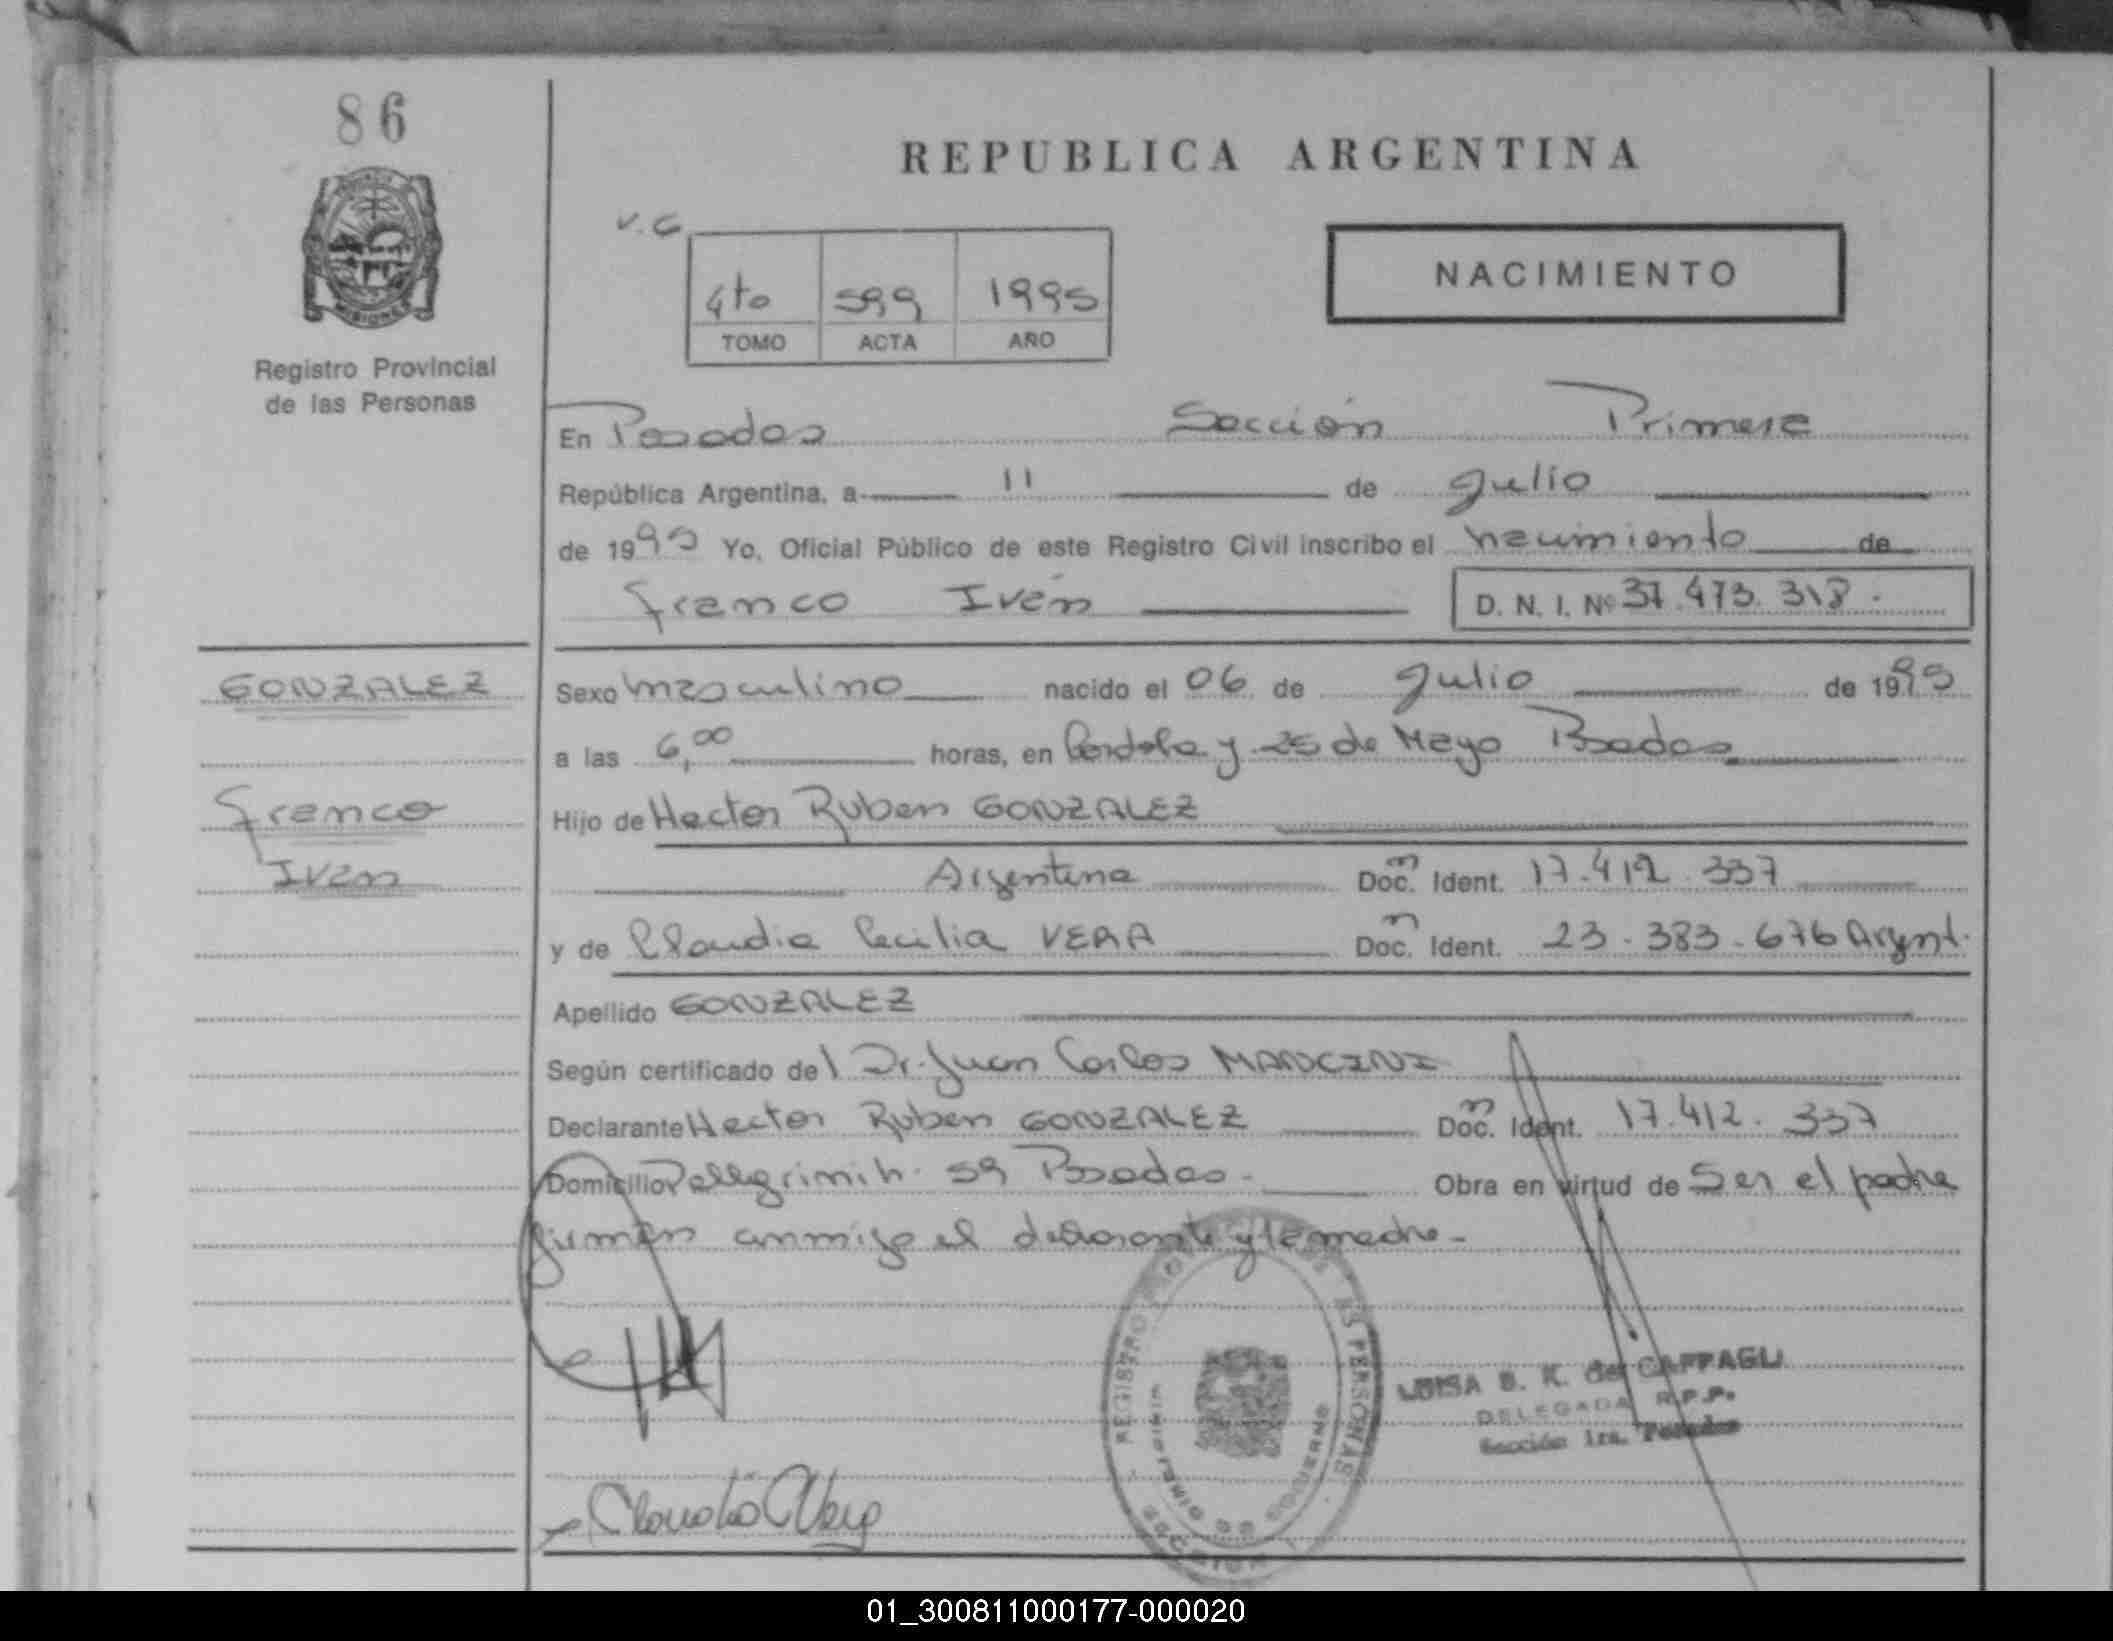 86
REPUBLICA ARGENTINA
V.C
4to 599 1995
TOMO ACTA AÑO
NACIMIENTO
MISIONES
Registro Provincial
de las Personas
En Posadas Sección Primera
República Argentina, a 11 de Julio
de 1995 Yo, Oficial Público de este Registro Civil inscribo el nacimiento de
Franco Iván D. N. I. Nº 37.473.318.
GONZALEZ
Sexo masculino nacido el 06 de Julio de 1995
a las 6,00 horas, en Cordoba y 25 de Mayo Posadas
Franco
Hijo de Hector Ruben GONZALEZ
Iván
Argentina Doc. Ident. 17.412.337
y de Claudia Cecilia VERA Doc. Ident. 23.383.676 Argent.
Apellido GONZALEZ
Según certificado del Dr. Juan Carlos MANCINI
Declarante Hector Ruben GONZALEZ Doc. Ident. 17.412.337
Domicilio Pellegrini h. 59 Posadas. Obra en virtud de Ser el padre
firman conmigo el declarante y la madre.
REGISTRO PERSONAS
MINISTERIO DE GOBIERNO
LUISA B. K. de CAPPAGLI
DELEGADA R.P.P.
Sección 1ra. Posadas
Claudia Vera
01_300811000177-000020